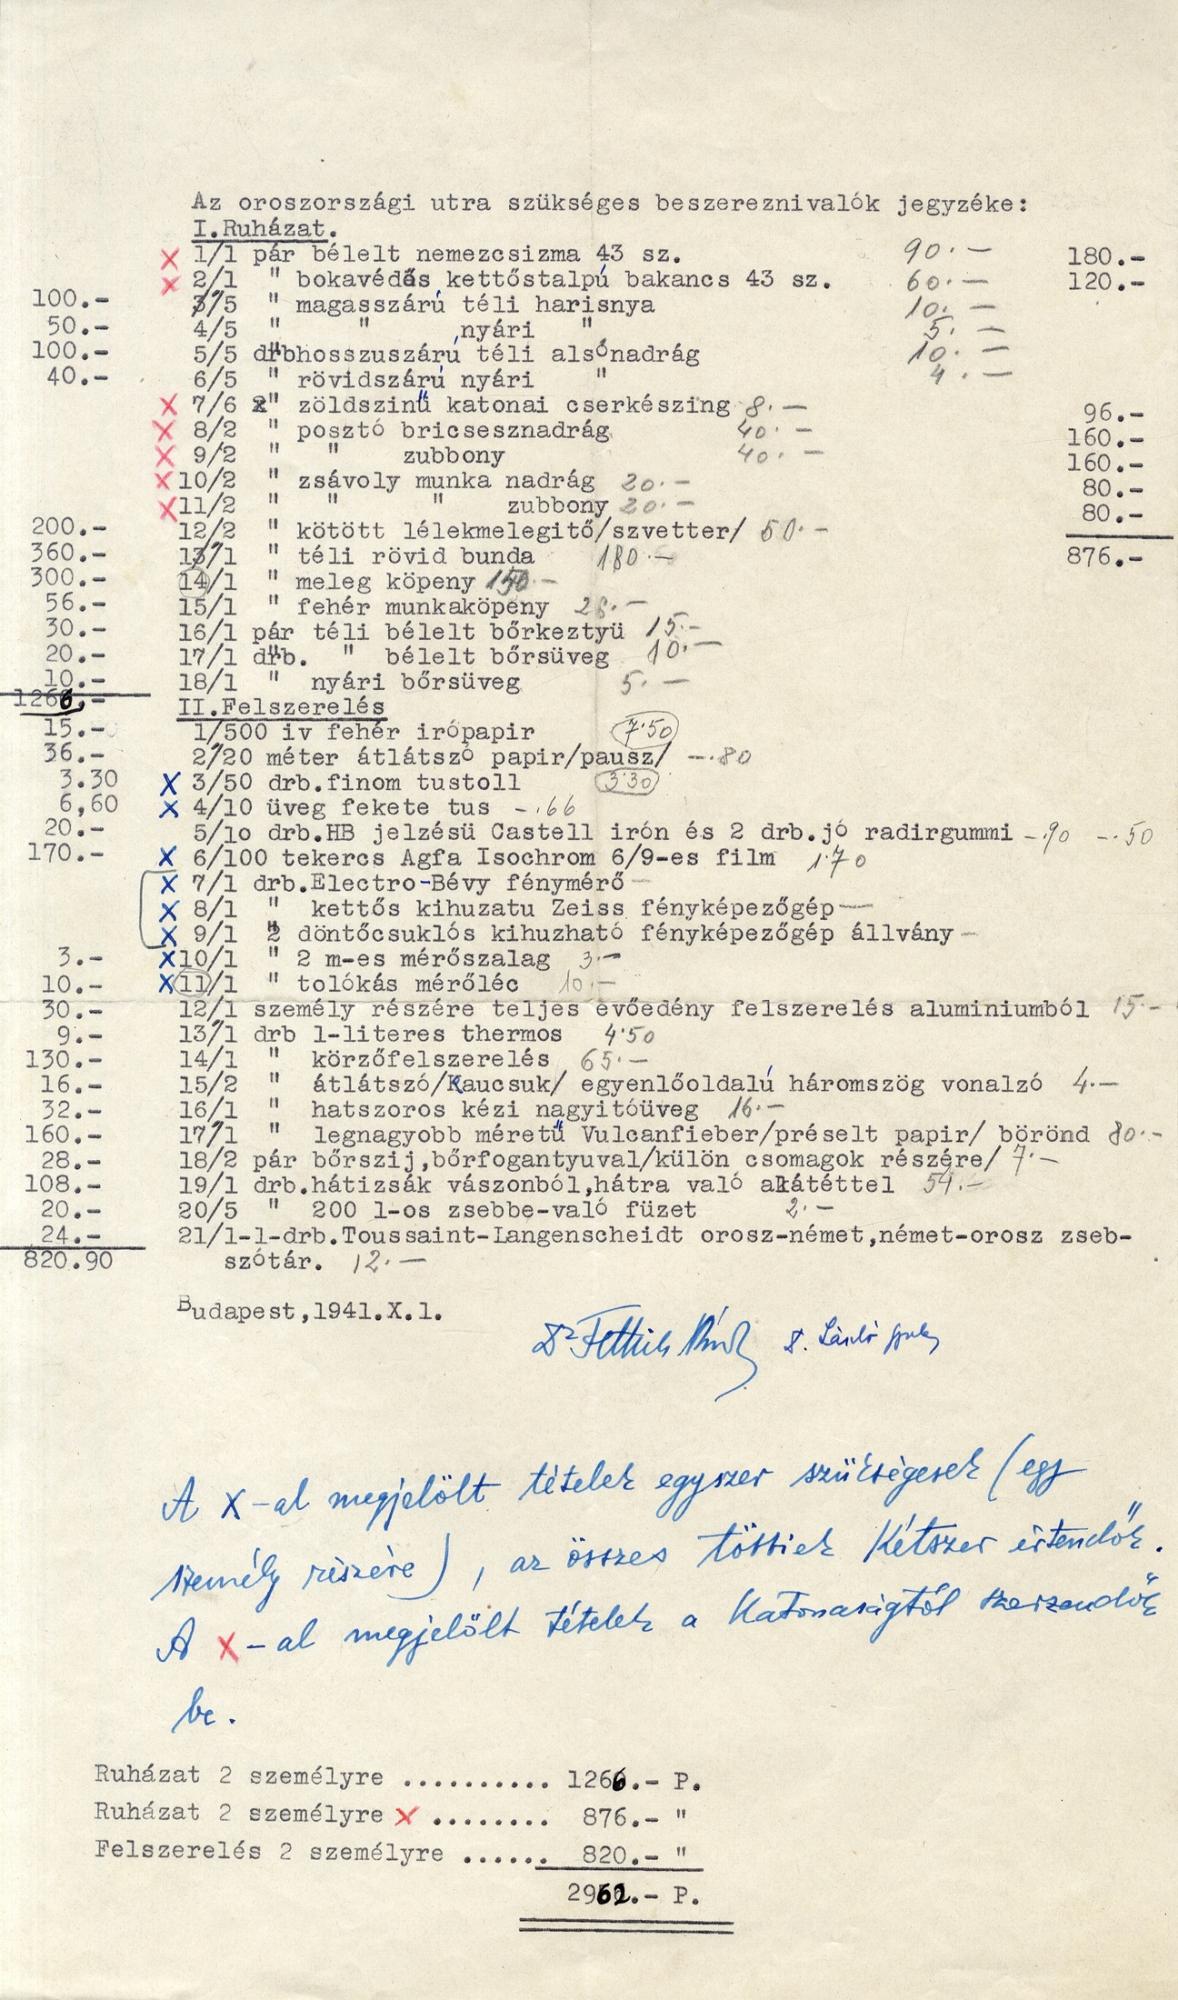 Az oroszországi utra szükséges beszereznivalók jegyzéke:
I.Ruházat.
X 1/1 pár bélelt nemezcsizma 43 sz. 90.— 180.-
X 2/1 " bokavédős,kettőstalpú bakancs 43 sz. 60.— 120.-
100.- 3/5 " magasszárú téli harisnya 10.—
50.- 4/5 " " nyári " 5.—
100.- 5/5 drbhosszuszárú téli alsónadrág 10.—
40.- 6/5 " rövidszárú nyári " 4.—
X 7/6 " zöldszinű katonai cserkészing 8.— 96.-
X 8/2 " posztó bricsesznadrág 40.— 160.-
X 9/2 " " zubbony 40.— 160.-
X 10/2 " zsávoly munka nadrág 20.— 80.-
X 11/2 " " " zubbony 20.— 80.-
200.- 12/2 " kötött lélekmelegitő/szvetter/ 50.—
360.- 13/1 " téli rövid bunda 180.— 876.-
300.- 14/1 " meleg köpeny 150.—
56.- 15/1 " fehér munkaköpeny 28.—
30.- 16/1 pár téli bélelt bőrkeztyü 15.-
20.- 17/1 drb. " bélelt bőrsüveg 10.—
10.- 18/1 " nyári bőrsüveg 5.—
1266.- II.Felszerelés
15.- 1/500 iv fehér irópapir 7.50
36.- 2/20 méter átlátszó papir/pausz/ —.80
3.30 X 3/50 drb.finom tustoll 3.30
6,60 X 4/10 üveg fekete tus -.66
20.- 5/10 drb.HB jelzésü Castell irón és 2 drb.jó radirgummi -.90 -.50
170.- X 6/100 tekercs Agfa Isochrom 6/9-es film 1.70
X 7/1 drb.Electro-Bévy fénymérő —
X 8/1 " kettős kihuzatu Zeiss fényképezőgép —
X 9/1 " döntőcsuklós kihuzható fényképezőgép állvány —
3.- X 10/1 " 2 m-es mérőszalag 3.—
10.- X 11/1 " tolókás mérőléc 10.—
30.- 12/1 személy részére teljes evőedény felszerelés aluminiumból 15.—
9.- 13/1 drb 1-literes thermos 4.50
130.- 14/1 " körzőfelszerelés 65.—
16.- 15/2 " átlátszó/Kaucsuk/ egyenlőoldalú háromszög vonalzó 4.—
32.- 16/1 " hatszoros kézi nagyitóüveg 16.—
160.- 17/1 " legnagyobb méretű Vulcanfieber/préselt papir/ börönd 80.—
28.- 18/2 pár bőrszij,bőrfogantyuval/külön csomagok részére/ 7.—
108.- 19/1 drb.hátizsák vászonból,hátra való alátéttel 54.—
20.- 20/5 " 200 l-os zsebbe-való füzet 2.—
24.- 21/1-1-drb.Toussaint-Langenscheidt orosz-német,német-orosz zseb-
820.90 szótár. 12.—
Budapest,1941.X.1.
Dr Fettich Nándor D. László Gyula
A X-al megjelölt tételek egyszer szükségesek (egy
személy részére), az összes többiek kétszer értendők.
A X-al megjelölt tételek a Katonaságtól szerzendők
be.
Ruházat 2 személyre .......... 1266.- P.
Ruházat 2 személyre X ........ 876.- "
Felszerelés 2 személyre ...... 820.- "
2962.- P.